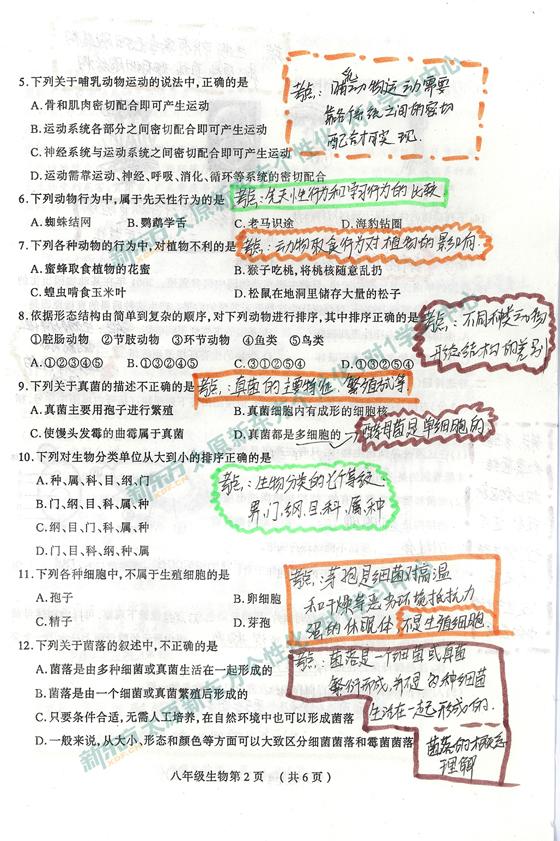 5.下列关于哺乳动物运动的说法中,正确的是
考点:哺乳动物运动需要
靠各系统之间的密切
配合才可实现.
A.骨和肌肉密切配合即可产生运动
B.运动系统各部分之间密切配合即可产生运动
C.神经系统与运动系统之间密切配合即可产生运动
D.运动需靠运动、神经、呼吸、消化、循环等系统的密切配合
6.下列动物行为中,属于先天性行为的是
考点:先天性行为和学习行为的比较
A.蜘蛛结网 B.鹦鹉学舌 C.老马识途 D.海豹钻圈
7.下列各种动物的行为中,对植物不利的是
考点:动物取食行为对植物的影响.
A.蜜蜂取食植物的花蜜 B.猴子吃桃,将桃核随意乱扔
C.蝗虫啃食玉米叶 D.松鼠在地洞里储存大量的松子
8.依据形态结构由简单到复杂的顺序,对下列动物进行排序,其中排序正确的是
考点:不同种类动物
形态结构的差别
①腔肠动物 ②节肢动物 ③环节动物 ④鱼类 ⑤鸟类
A.①②③④⑤ B.①③②④⑤ C.③①②④⑤ D.①③②⑤④
9.下列关于真菌的描述不正确的是
考点:真菌的主要特征、繁殖方式等
A.真菌主要用孢子进行繁殖 B.真菌细胞内有成形的细胞核
C.使馒头发霉的曲霉属于真菌 D.真菌都是多细胞的
酵母菌是单细胞的
10.下列对生物分类单位从大到小的排序正确的是
考点:生物分类的七个等级
界,门,纲,目,科,属,种
A.种、属、科、目、纲、门
B.门、纲、目、科、属、种
C.纲、目、门、科、属、种
D.门、目、科、纲、种、属
11.下列各种细胞中,不属于生殖细胞的是
A.孢子 B.卵细胞
C.精子 D.芽孢
考点:芽孢是细菌对高温
和干燥等恶劣环境抵抗力
强的休眠体 不是生殖细胞.
12.下列关于菌落的叙述中,不正确的是
考点:菌落是一个细菌或真菌
繁衍而成,并不是多种细菌
生活在一起形成的.
菌落的概念
理解
A.菌落是由多种细菌或真菌生活在一起形成的
B.菌落是由一个细菌或真菌繁殖后形成的
C.只要条件合适,无需人工培养,在自然环境中也可以形成菌落
D.一般来说,从大小、形态和颜色等方面可以大致区分细菌菌落和霉菌菌落
八年级生物第2页 (共6页)